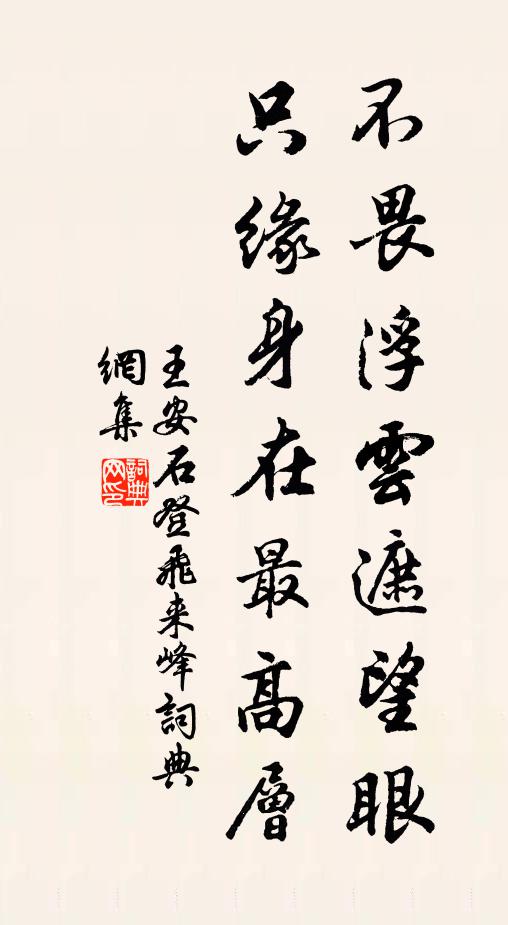 不畏浮雲遮望眼
只緣身在最高層
王安石登飛来峰詞典
網集
詞典
网印